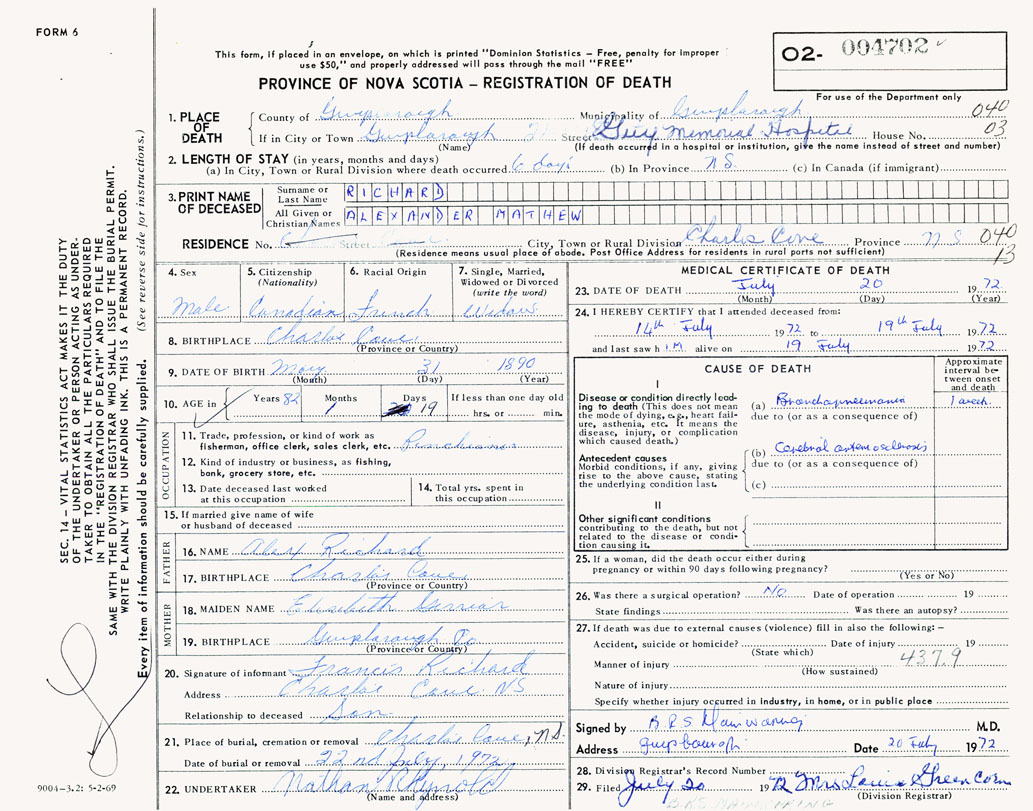 FORM 6
This form, if placed in an envelope, on which is printed "Dominion Statistics – Free, penalty for improper
use $50," and properly addressed will pass through the mail "FREE"
PROVINCE OF NOVA SCOTIA – REGISTRATION OF DEATH
O2- 004702
For use of the Department only
1. PLACE OF DEATH
County of Municipality of 040
If in City or Town Street Guys Memorial Hospital House No. 03
(Name) (If death occurred in a hospital or institution, give the name instead of street and number)
2. LENGTH OF STAY (in years, months and days)
(a) In City, Town or Rural Division where death occurred 6 days (b) In Province N S. (c) In Canada (if immigrant)
3. PRINT NAME OF DECEASED
Surname or Last Name RICHARD
All Given or Christian Names ALEXANDER MATHEW
RESIDENCE No. Street City, Town or Rural Division Charlos Cove Province N S 040
(Residence means usual place of abode. Post Office Address for residents in rural parts not sufficient) 13
4. Sex Male
5. Citizenship (Nationality) Canadian
6. Racial Origin French
7. Single, Married, Widowed or Divorced (write the word)
8. BIRTHPLACE Charlos Cove
(Province or Country)
9. DATE OF BIRTH May 31 1890
(Month) (Day) (Year)
10. AGE in Years 82 Months 1 Days 19 If less than one day old hrs. or min.
OCCUPATION
11. Trade, profession, or kind of work as
fisherman, office clerk, sales clerk, etc.
12. Kind of industry or business, as fishing,
bank, grocery store, etc.
13. Date deceased last worked
at this occupation
14. Total yrs. spent in
this occupation
15. If married give name of wife
or husband of deceased
FATHER
16. NAME Alex Richard
17. BIRTHPLACE Charlos Cove
(Province or Country)
MOTHER
18. MAIDEN NAME Elizabeth
19. BIRTHPLACE Co
(Province or Country)
20. Signature of informant Francis Richard
Address Charlos Cove NS
Relationship to deceased Son
21. Place of burial, cremation or removal Charlos Cove, N.S.
Date of burial or removal 22nd July, 1972
22. UNDERTAKER Nathan
(Name and address)
MEDICAL CERTIFICATE OF DEATH
23. DATE OF DEATH July 20 1972
(Month) (Day) (Year)
24. I HEREBY CERTIFY that I attended deceased from:
14th July 1972 to 19th July 1972
and last saw him alive on 19 July 1972
CAUSE OF DEATH
Approximate interval between onset and death
I
Disease or condition directly leading to death (This does not mean
the mode of dying, e.g., heart failure, asthenia, etc. It means the
disease, injury, or complication
which caused death.)
(a) Bronchopneumonia 1 week
due to (or as a consequence of)
Antecedent causes
Morbid conditions, if any, giving
rise to the above cause, stating
the underlying condition last.
(b) Cerebral arteriosclerosis
due to (or as a consequence of)
(c)
II
Other significant conditions
contributing to the death, but not
related to the disease or condition causing it.
25. If a woman, did the death occur either during
pregnancy or within 90 days following pregnancy?
(Yes or No)
26. Was there a surgical operation? No Date of operation 19
State findings Was there an autopsy?
27. If death was due to external causes (violence) fill in also the following: –
Accident, suicide or homicide? Date of injury 19
(State which)
Manner of injury 437.9
(How sustained)
Nature of injury
Specify whether injury occurred in industry, in home, or in public place
Signed by M.D.
Address Date 20 July 1972
28. Division Registrar's Record Number
29. Filed July 20 1972 Mrs Louis Greencorn
(Division Registrar)
SEC. 14 – VITAL STATISTICS ACT MAKES IT THE DUTY
OF THE UNDERTAKER OR PERSON ACTING AS UNDER-
TAKER TO OBTAIN ALL THE PARTICULARS REQUIRED
IN THE "REGISTRATION OF DEATH" AND TO FILE THE
SAME WITH THE DIVISION REGISTRAR WHO SHALL ISSUE THE BURIAL PERMIT.
WRITE PLAINLY WITH UNFADING INK. THIS IS A PERMANENT RECORD.
Every item of information should be carefully supplied. (See reverse side for instructions.)
9004-3.2: 5-2-69